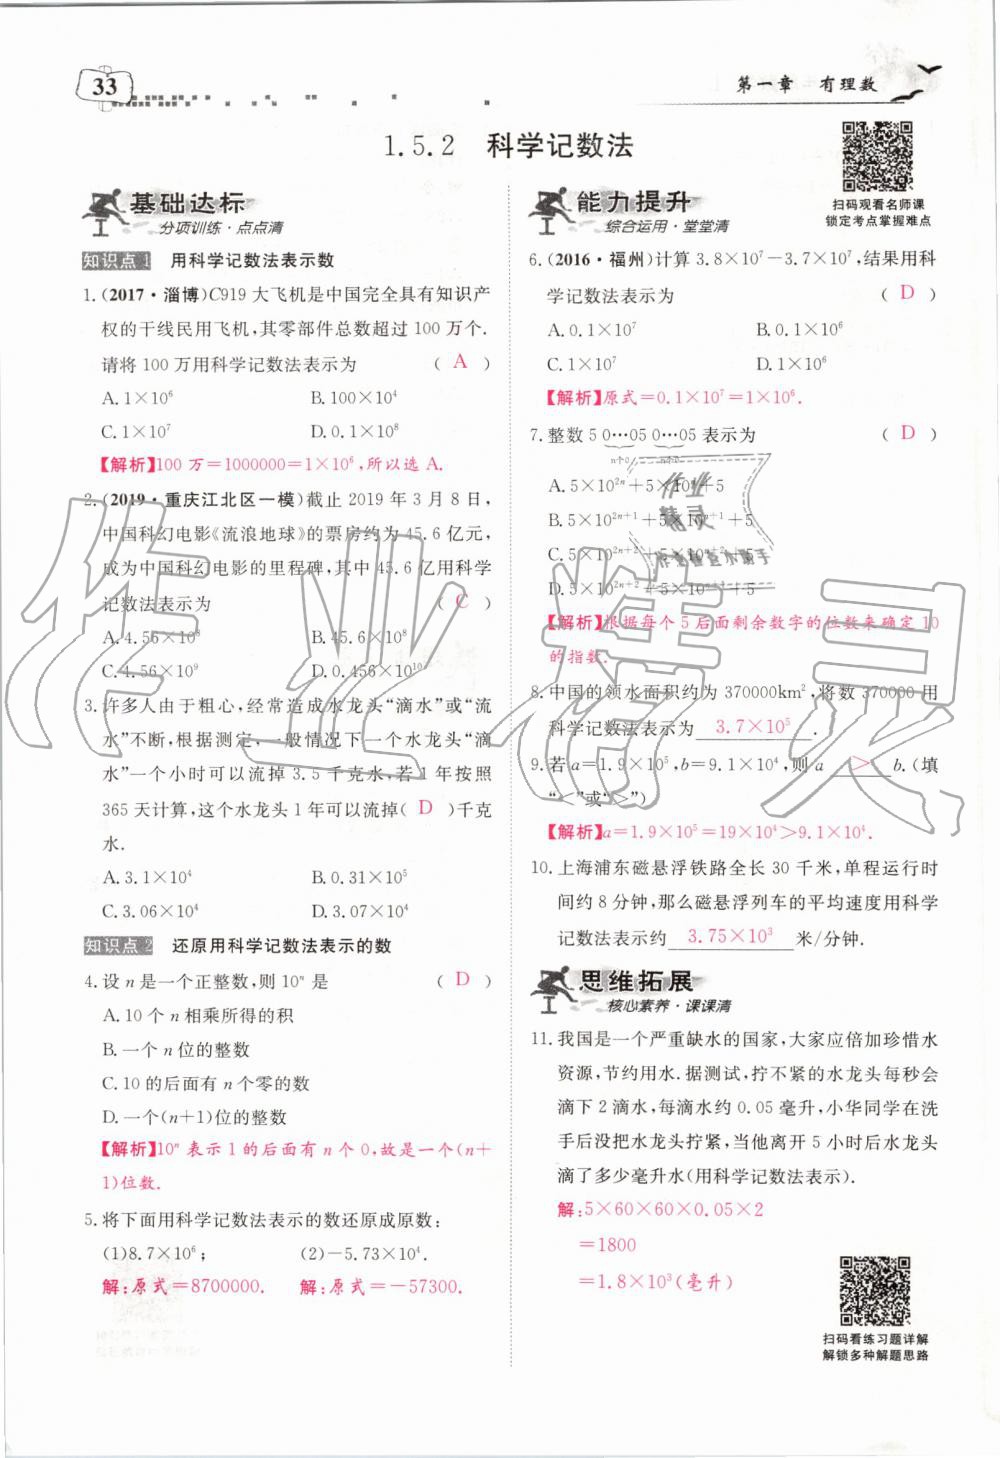 33
第一章 有理数
1.5.2 科学记数法
扫码观看名师课
锁定考点掌握难点
基础达标
分项训练·点点清
知识点1 用科学记数法表示数
1.(2017·淄博)C919大飞机是中国完全具有知识产
权的干线民用飞机,其零部件总数超过100万个.
请将100万用科学记数法表示为 ( A )
A.1×10⁶ B.100×10⁴
C.1×10⁷ D.0.1×10⁸
【解析】100万=1000000=1×10⁶,所以选A.
2.(2019·重庆江北区一模)截止2019年3月8日,
中国科幻电影《流浪地球》的票房约为45.6亿元,
成为中国科幻电影的里程碑,其中45.6亿用科学
记数法表示为 ( C )
A.4.56×10⁸ B.45.6×10⁸
C.4.56×10⁹ D.0.456×10¹⁰
3.许多人由于粗心,经常造成水龙头“滴水”或“流
水”不断,根据测定,一般情况下一个水龙头“滴
水”一个小时可以流掉3.5千克水,若1年按照
365天计算,这个水龙头1年可以流掉( D )千克
水.
A.3.1×10⁴ B.0.31×10⁵
C.3.06×10⁴ D.3.07×10⁴
知识点2 还原用科学记数法表示的数
4.设n是一个正整数,则10ⁿ是 ( D )
A.10个n相乘所得的积
B.一个n位的整数
C.10的后面有n个零的数
D.一个(n+1)位的整数
【解析】10ⁿ表示1的后面有n个0,故是一个(n+
1)位数.
5.将下面用科学记数法表示的数还原成原数:
(1)8.7×10⁶; (2)-5.73×10⁴.
解:原式=8700000. 解:原式=-57300.
能力提升
综合运用·堂堂清
6.(2016·福州)计算3.8×10⁷-3.7×10⁷,结果用科
学记数法表示为 ( D )
A.0.1×10⁷ B.0.1×10⁶
C.1×10⁷ D.1×10⁶
【解析】原式=0.1×10⁷=1×10⁶.
7.整数5 0…05 0…05表示为 ( D )
n个0 n个0
A.5×10²ⁿ+5×10ⁿ+5
B.5×10²ⁿ⁺¹+5×10ⁿ⁺¹+5
C.5×10²ⁿ⁺²+5×10ⁿ⁺²+5
D.5×10²ⁿ⁺²+5×10ⁿ⁺¹+5
【解析】根据每个5后面剩余数字的位数来确定10
的指数.
8.中国的领水面积约为370000km²,将数370000用
科学记数法表示为 3.7×10⁵ .
9.若a=1.9×10⁵,b=9.1×10⁴,则a > b.(填
“<”或“>”)
【解析】a=1.9×10⁵=19×10⁴>9.1×10⁴.
10.上海浦东磁悬浮铁路全长30千米,单程运行时
间约8分钟,那么磁悬浮列车的平均速度用科学
记数法表示约 3.75×10³ 米/分钟.
思维拓展
核心素养·课课清
11.我国是一个严重缺水的国家,大家应倍加珍惜水
资源,节约用水.据测试,拧不紧的水龙头每秒会
滴下2滴水,每滴水约0.05毫升,小华同学在洗
手后没把水龙头拧紧,当他离开5小时后水龙头
滴了多少毫升水(用科学记数法表示).
解:5×60×60×0.05×2
=1800
=1.8×10³(毫升)
扫码看练习题详解
解锁多种解题思路
作业精灵
作业
精灵
作业检查小助手